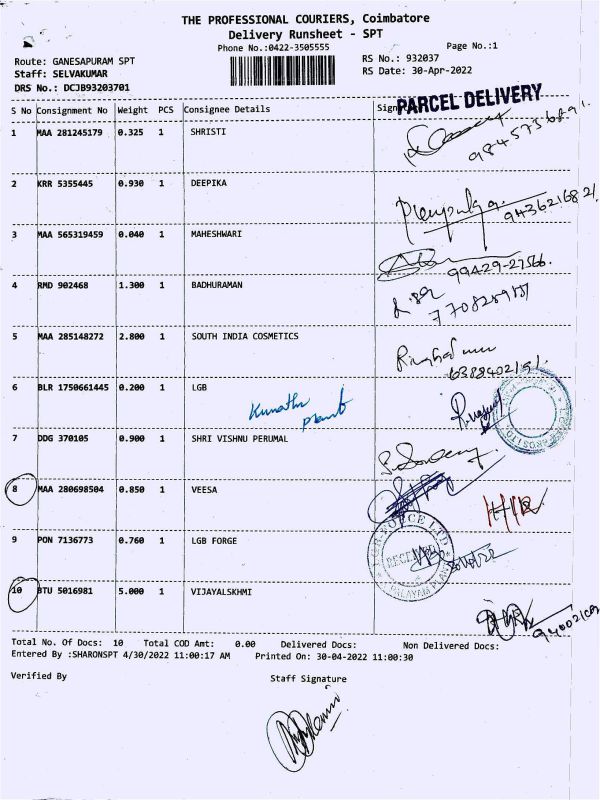 THE PROFESSIONAL COURIERS, Coimbatore
Delivery Runsheet - SPT
Phone No.:0422-3505555
Page No.:1
Route: GANESAPURAM SPT
RS No.: 932037
Staff: SELVAKUMAR
RS Date: 30-Apr-2022
DRS No.: DCJB93203701
PARCEL DELIVERY
S No Consignment No Weight PCS Consignee Details
1 MAA 281245179 0.325 1 SHRISTI
2 KRR 5355445 0.930 1 DEEPIKA
3 MAA 565319459 0.040 1 MAHESHWARI
99429-27566.
4 RMD 902468 1.300 1 BADHURAMAN
5 MAA 285148272 2.800 1 SOUTH INDIA COSMETICS
6 BLR 1750661445 0.200 1 LGB
7 DDG 370105 0.900 1 SHRI VISHNU PERUMAL
8 MAA 280698504 0.850 1 VEESA
9 PON 7136773 0.760 1 LGB FORGE
RECEIVED
10 BTU 5016981 5.000 1 VIJAYALSKHMI
Total No. Of Docs: 10 Total COD Amt: 0.00 Delivered Docs: Non Delivered Docs:
Entered By :SHARONSPT 4/30/2022 11:00:17 AM Printed On: 30-04-2022 11:00:30
Verified By Staff Signature